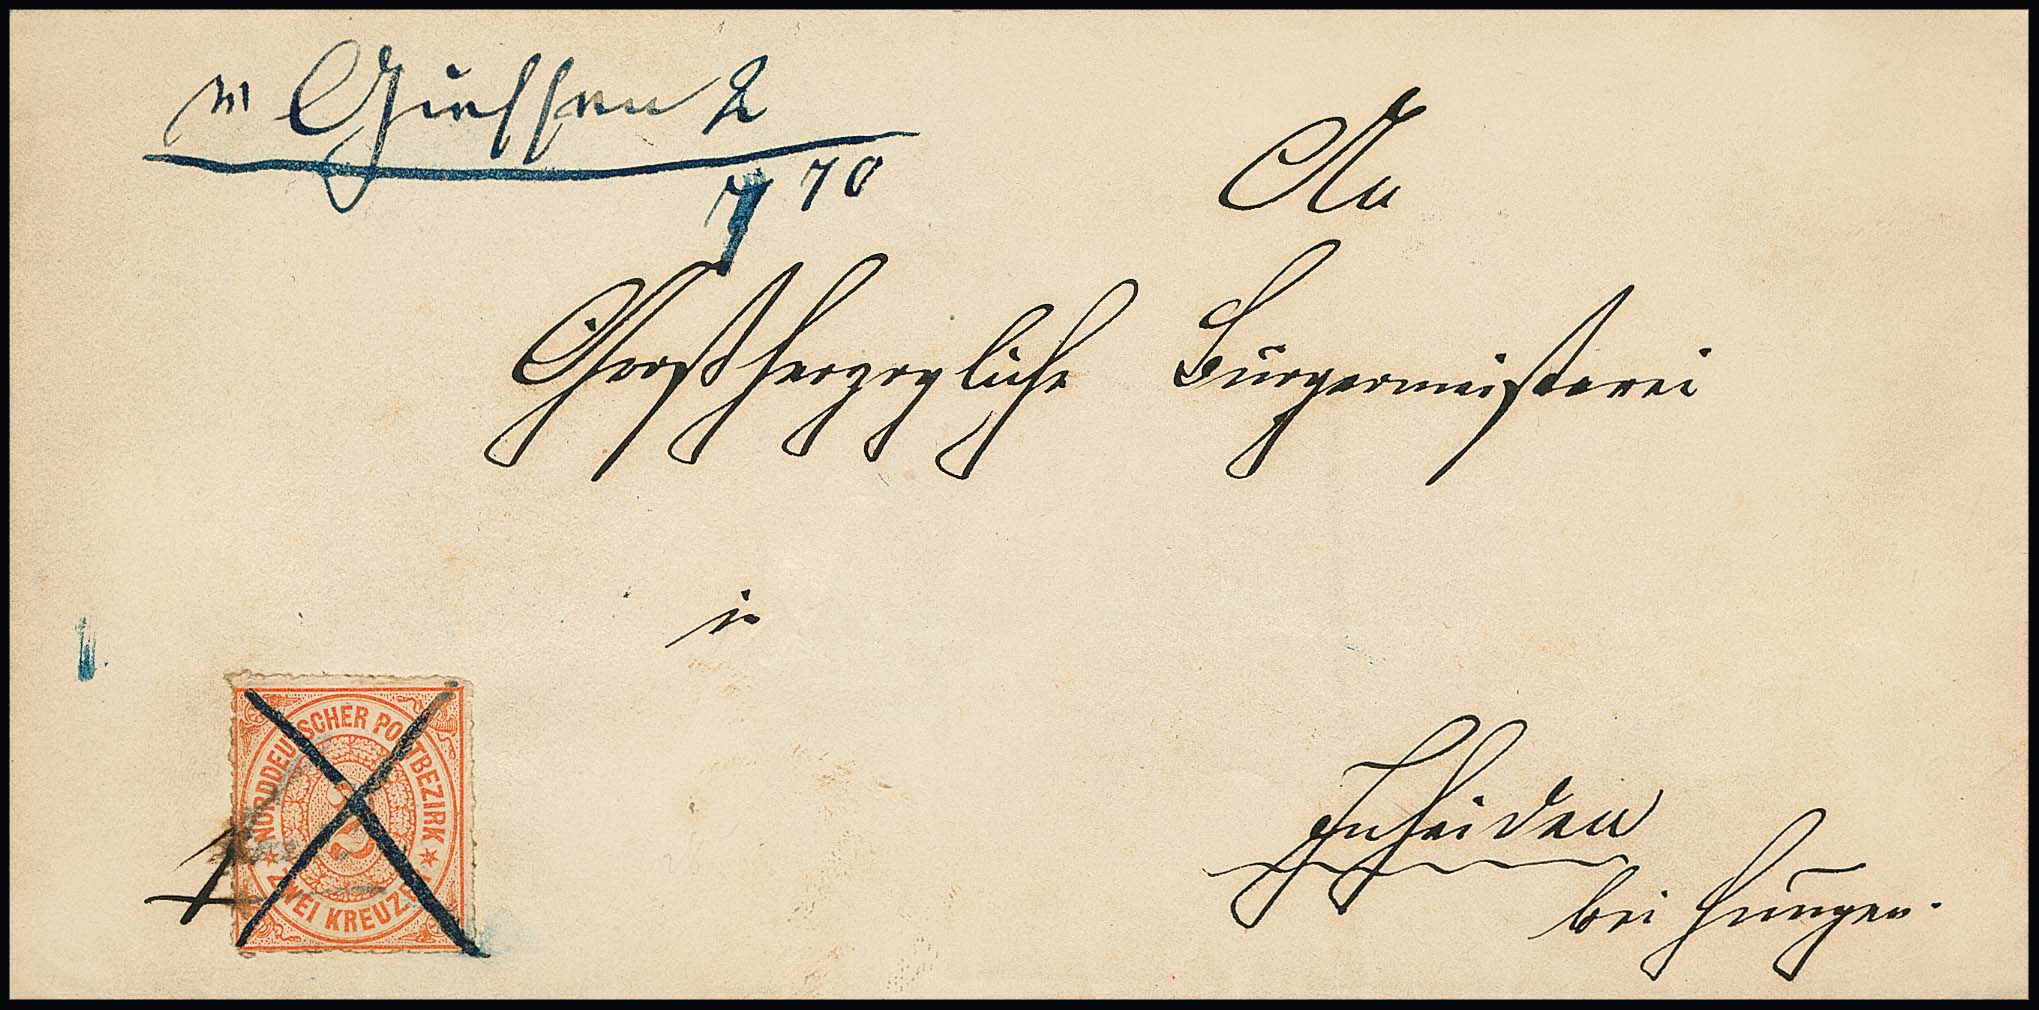 Giessen 2
7 70
An
Großherzogliche Bürgermeisterei
in
Inheiden
bei Hungen.
NORDDEUTSCHER POSTBEZIRK
2
ZWEI KREUZER